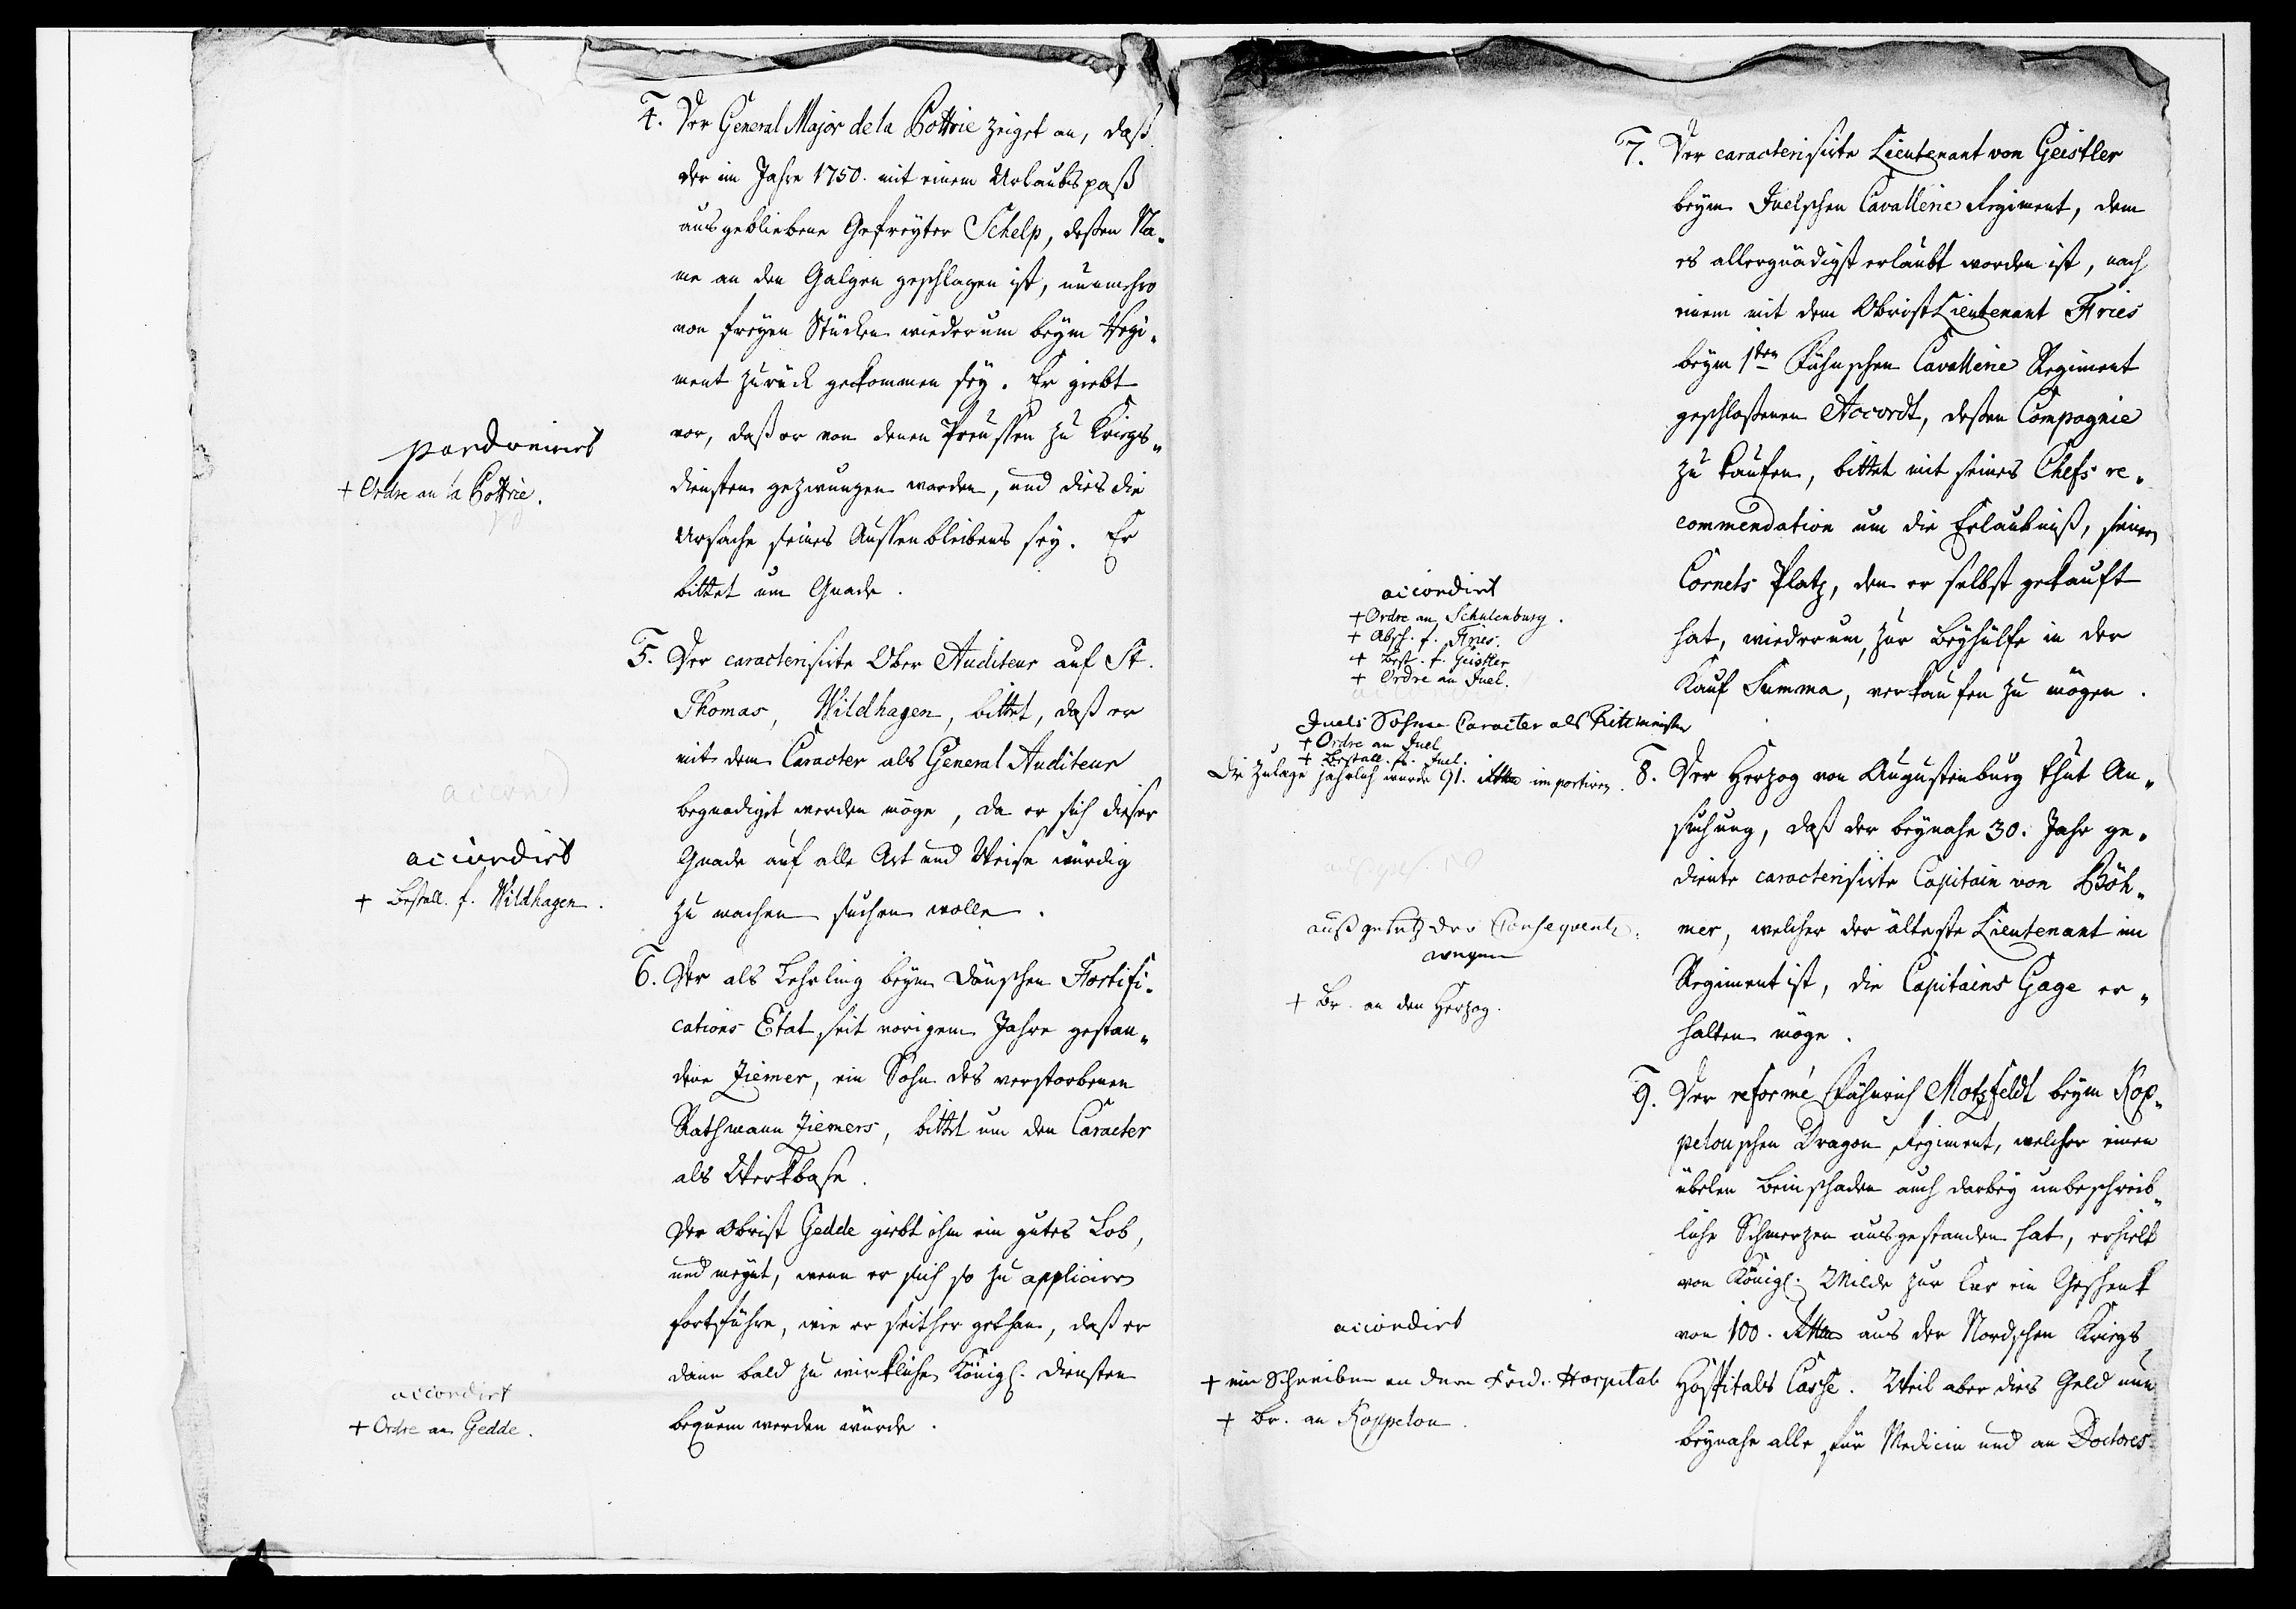 4. Der General Major de la Pottrie zeiget an, daß
der im Jahre 1750. mit einem Urlaubspaß
ausgebliebene Gefreyter Schelp, deßen Na-
me an den Galgen geschlagen ist, nunmehro
von freyen Stücken wiederum beym Regi-
ment zurück gekommen sey. Er giebt
vor, daß er von denen Preussen zu Kriegs-
diensten gezwungen worden, und dies die
Ursache seines Aussenbleibens sey. Er
bittet um Gnade.
pardonnirt
+ Ordre an la Pottrie.
5. Der caracterisirte Ober Auditeur auf St.
Thomas, Wildhagen, bittet, daß er
mit dem Caracter als General Auditeur
begnadiget werden möge, da er sich dieser
Gnade auf alle Art und Weise würdig
zu machen suchen wolle.
accordirt
+ Bestall. f. Wildhagen.
6. Der als Lehrling beym Dänschen Fortifi-
cations Etat seit vorigem Jahre gestan-
dene Ziemer, ein Sohn des verstorbenen
Rathmann Ziemers, bittet um den Caracter
als Werkbase.
Der Obrist Gedde giebt ihm ein gutes Lob,
und meynt, wenn er sich so zu appliciren
fortführe, wie er seither gethan, daß er
dann bald zu wirkliche Königl. Diensten
bequem werden würde.
accordirt
+ Ordre an Gedde.
7. Der caracterisirte Lieutenant von Geistler
beym Juelschen Cavallerie Regiment, dem
es allergnädigst erlaubt worden ist, nach
einem mit dem Obrist Lieutenant Fries
beym 1sten Fühnschen Cavallerie Regiment
geschloßenen Accordt, deßen Compagnie
zu kaufen, bittet mit seines Chefs re-
commendation um die Erlaubniß, seinen
Cornets Platz, den er selbst gekauft
hat, wiederum, zur Beyhülfe in der
Kauf Summa, verkaufen zu mögen.
accordirt
+ Ordre an Schulenburg.
+ Absch. f. Fries.
+ Best. f. Geistler
+ Ordre an Juel.
Juels Sohne Caracter als Ritmeister
+ Ordre an Juel
+ Bestall. f. Juel.
Die Zulage jährlich würde 91. Rthlr importiren.
8. Der Herzog von Augustenburg thut An-
suchung, daß der beynahe 30. Jahr ge-
diente caracterisirte Capitain von Böh-
mer, welcher der älteste Lieutenant im
Regiment ist, die Capitains Gage er-
halten möge.
außgesetz der Consequentz
wegen
+ Br. an den Herzog.
9. Der reformé Fähnrich Motzfeldt beym Kop-
pelouschen Dragon Regiment, welcher einen
übelen Beinschaden auch darbey unbeschreib-
liche Schmerzen ausgestanden hat, erhielt
von Königl. Milde zur Cur ein Geschenk
von 100. Rthlr aus der Nordschen Kriegs
Hospitals Casse. Weil aber dies Geld nun
beynahe alle für Medicin und an Doctores
accordirt
+ ein Schreiben an dem Frid. Hospital
+ Br. an Koppelou.